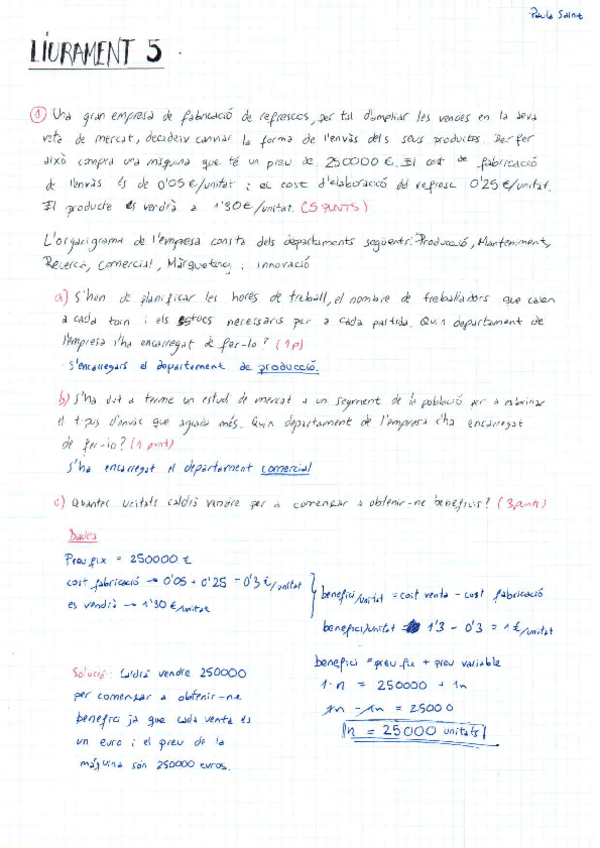 Paula Sainz
LLIURAMENT 5
1 Una gran empresa de fabricació de refrescos, per tal d'ampliar les vendes en la seva
veta de mercat, decideix canviar la forma de l'envàs dels seus productes. Per fer
això compra una màquina que té un preu de 250000 €. El cost de fabricació
de l'envàs és de 0'05 €/unitat i el cost d'elaboració del refresc 0'25 €/unitat.
El producte es vendrà a 1'30 €/unitat. (5 PUNTS)
L'organigrama de l'empresa consta dels departaments següents: Producció, Manteniment,
Recerca, comercial, Màrqueting i innovació
a) S'han de planificar les hores de treball, el nombre de treballadors que calen
a cada torn i els estocs necessaris per a cada partida. Quin departament de
l'empresa s'ha encarregat de fer-lo? (1p)
S'encarregarà el departament de producció.
b) S'ha dut a terme un estudi de mercat a un segment de la població per a esbrinar
el tipus d'envàs que agrada més. Quin departament de l'empresa s'ha encarregat
de fer-lo? (1 punt)
S'ha encarregat el departament comercial
c) Quantes unitats caldrà vendre per a començar a obtenir-ne beneficis? (3 punts)
Dades
Preu fix = 250000 €
cost fabricació → 0'05 + 0'25 = 0'3 €/unitat
es vendrà → 1'30 €/unitat
benefici/unitat = cost venta - cost fabricació
benefici/unitat = 1'3 - 0'3 = 1 €/unitat
benefici = preu fix + preu variable
1·n = 250000 + 1n
1n - 1n = 25000
n = 25000 unitats
Solució: Caldrà vendre 250000
per començar a obtenir-ne
benefici ja que cada venta és
un euro i el preu de la
màquina són 250000 euros.